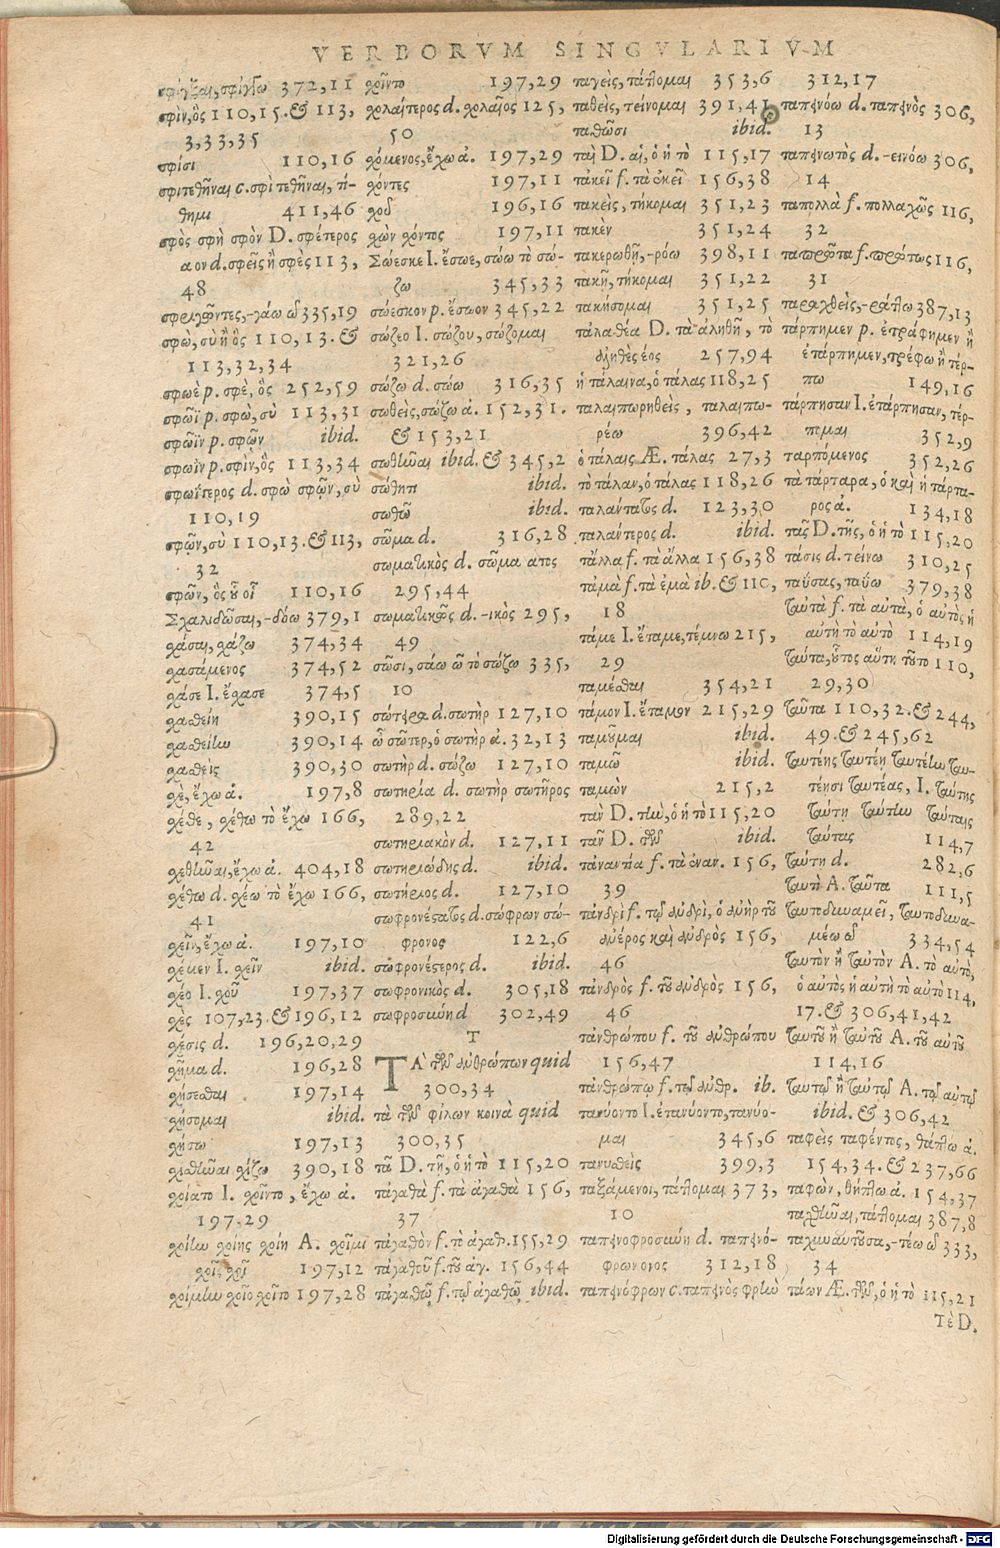 VERBORVM SINGVLARIVM
σφίγξαι, σφίγγω 372,11
σφὶν, ὃς 110,15. & 113,
3,33,35
σφίσι 110,16
σφιτεθῆναι c. σφὶ τεθῆναι, τί-
θημι 411,46
σφὸς σφὴ σφὸν D. σφέτερος
α ον d. σφεῖς ἢ σφὲς 113,
48
σφριγῶντες, -γάω ῶ 335,19
σφὼ, σὺ ἢ ὃς 110,13. &
113,32,34
σφωὲ p. σφὲ, ὃς 252,59
σφῶϊ p. σφὼ, σὺ 113,31
σφῶϊν p. σφῶν ibid.
σφωῒν p. σφὶν, ὃς 113,34
σφωΐτερος d. σφὼ σφῶν, σὺ
110,19
σφῶν, σὺ 110,13. & 113,
32
σφῶν, ὃς οὗ οἷ 110,16
Σχαλιδῶσαι, -δόω 379,1
χάσαι, χάζω 374,34
χασάμενος 374,52
χάσε I. ἔχασε 374,5
σχεθείη 390,15
σχεθείην 390,14
σχεθεὶς 390,30
σχὲ, ἔχω ἀ. 197,8
σχέθε, σχέθω τὸ ἔχω 166,
42
σχεθῆναι, ἔχω ἀ. 404,18
σχέθω d. σχέω τὸ ἔχω 166,
41
σχεῖν, ἔχω ἀ. 197,10
σχέμεν I. σχεῖν ibid.
σχέο I. σχοῦ 197,37
σχὲς 107,23. & 196,12
σχέσις d. 196,20,29
σχῆμα d. 196,28
σχήσεσθαι 197,14
σχήσομαι ibid.
σχήσω 197,13
σχισθῆναι σχίζω 390,18
σχοίατο I. σχοῖντο, ἔχω ἀ.
197,29
σχοίην σχοίης σχοίη A. σχοῖμι
σχοῖς σχοῖ 197,12
σχοίμην σχοῖο σχοῖτο 197,28
σχοῖντο 197,29
σχολαίτερος d. σχολαῖος 125,
50
σχόμενος, ἔχω ἀ. 197,29
σχόντες 197,11
σχοῦ 196,16
σχὼν σχόντος 197,11
Σώεσκε I. ἔσωε, σώω τὸ σώ-
ζω 345,33
σώεσκον p. ἔσωον 345,22
σώζεο I. σώζου, σώζομαι
321,26
σώζω d. σώω 316,35
σωθεὶς, σώζω ἀ. 152,31.
& 153,21
σωθῆναι ibid. & 345,2
σώθητι ibid.
σωθῶ ibid.
σῶμα d. 316,28
σωματικὸς d. σῶμα ατος
295,44
σωματικῶς d. -ικὸς 295,
49
σῶσι, σάω ῶ τὸ σώζω 335,
10
σώτειρα d. σωτὴρ 127,10
ὦ σῶτερ, ὁ σωτὴρ ἀ. 32,13
σωτὴρ d. σώζω 127,10
σωτηρία d. σωτὴρ σωτῆρος
289,22
σωτηριακὸν d. 127,11
σωτηριώδης d. ibid.
σωτήριος d. 127,10
σωφρονέστατος d. σώφρων σώ-
φρονος 122,6
σωφρονέστερος d. ibid.
σωφρονικὸς d. 305,18
σωφροσύνη d 302,49
T
TΑ῾ τῶν ἀνθρώπων quid
300,34
τὰ τῶν φίλων κοινὰ quid
300,35
τᾶ D. τῇ, ὁ ἡ τὸ 115,20
τἀγαθὰ f. τὰ ἀγαθὰ 156,
37
τἀγαθὸν f. τὸ ἀγαθ. 155,29
τἀγαθοῦ f. τοῦ ἀγ. 156,44
τἀγαθῷ f. τῷ ἀγαθῷ ibid.
ταγεὶς, τάττομαι 353,6
ταθεὶς, τείνομαι 391,41
ταθῶσι ibid.
ταὶ D. αἱ, ὁ ἡ τὸ 115,17
τἀκεῖ f. τὰ ἐκεῖ 156,38
τακεὶς, τήκομαι 351,23
τακὲν 351,24
τακερωθῇ, -ρόω 398,11
τακῇ, τήκομαι 351,22
τακήσομαι 351,25
τἀλαθέα D. τὰ ἀληθῆ, τὸ
ἀληθὲς έος 257,94
ἡ τάλαινα, ὁ τάλας 118,25
ταλαιπωρηθεὶς, ταλαιπω-
ρέω 396,42
ὁ τάλαις Æ. τάλας 27,3
τὸ τάλαν, ὁ τάλας 118,26
ταλάντατος d. 123,30
ταλάντερος d. ibid.
τἄλλα f. τὰ ἄλλα 156,38
τἀμὰ f. τὰ ἐμὰ ib. & 110,
18
τάμε I. ἔταμε, τέμνω 215,
29
ταμέσθαι 354,21
τάμον I. ἔταμον 215,29
ταμοῦμαι ibid.
ταμῶ ibid.
ταμὼν 215,2
τὰν D. τὴν, ὁ ἡ τὸ 115,20
τᾶν D. τῶν ibid.
τἀναντία f. τὰ ἐναν. 156,
39
τἀνδρὶ f. τῷ ἀνδρὶ, ὁ ἀνὴρ τοῦ
ἀνέρος καὶ ἀνδρὸς 156,
46
τἀνδρὸς f. τοῦ ἀνδρὸς 156,
46
τἀνθρώπου f. τοῦ ἀνθρώπου
156,47
τἀνθρώπῳ f. τῷ ἀνθρ. ib.
τανύοντο I. ἐτανύοντο, τανύο-
μαι 345,6
τανυθεὶς 399,3
ταξάμενοι, τάττομαι 373,
10
ταπεινοφροσύνη d. ταπεινό-
φρων ονος 312,18
ταπεινόφρων c. ταπεινὸς φρὴν
312,17
ταπεινόω d. ταπεινὸς 306,
13
ταπεινωτὸς d. -εινόω 306,
14
ταπολλὰ f. πολλαχῶς 116,
32
ταπρῶτα f. πρώτως 116,
31
ταραχθεὶς, -ράττω 387,13
τάρπημεν p. ἐτράφημεν ἢ
ἐτάρπημεν, τρέφω ἢ τέρ-
πω 149,16
τάρπησαν I. ἐτάρπησαν, τέρ-
πομαι 352,9
ταρπόμενος 352,26
τὰ τάρταρα, ὁ καὶ ἡ τάρτα-
ρος ἀ. 134,18
τᾶς D. τῆς, ὁ ἡ τὸ 115,20
τάσις d. τείνω 310,25
ταΰσας, ταΰω 379,38
ταὐτὰ f. τὰ αὐτὰ, ὁ αὐτὸς ἡ
αὐτὴ τὸ αὐτὸ 114,19
ταῦτα, οὗτος αὕτη τοῦτο 110,
29,30
ταῦτα 110,32. & 244,
49. & 245,62
ταυτέης ταυτέη ταυτέην ταυ-
τέησι ταυτέας, I. ταύτης
ταύτη ταύτην ταύταις
ταύτας 114,7
ταύτη d. 282,6
ταυτὶ A. ταῦτα 111,5
ταυτοδυναμεῖ, ταυτοδυνα-
μέω ῶ 334,54
ταὐτὸν ἢ ταὐτὸν A. τὸ αὐτὸ,
ὁ αὐτὸς ἡ αὐτὴ τὸ αὐτὸ 114,
17. & 306,41,42
ταὐτοῦ ἢ ταὐτοῦ A. τοῦ αὐτοῦ
114,16
ταὐτῷ ἢ ταὐτῷ A. τῷ αὐτῷ
ibid. & 306,42
ταφεὶς ταφέντος, θάπτω ἀ.
154,34. & 237,66
ταφὼν, θήπτω ἀ. 154,37
ταχθῆναι, τάττομαι 387,8
ταχυαυτοῦσα, -τέω ῶ 333,
34
τάων Æ. τῶν, ὁ ἡ τὸ 115,21
τὲ D.
Digitalisierung gefördert durch die Deutsche Forschungsgemeinschaft - DFG